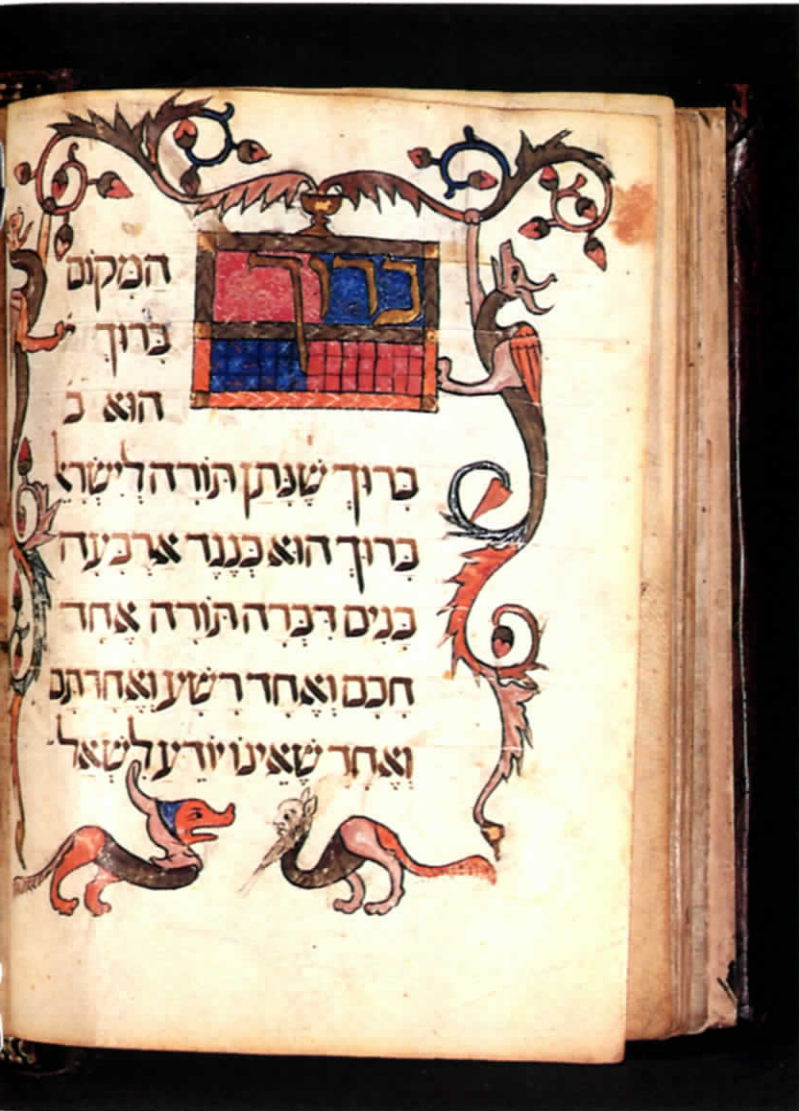 בָּרוּךְ
הַמָּקוֹם
בָּרוּךְ
הוּא בָּ
בָּרוּךְ שֶׁנָּתַן תּוֹרָה לְיִשְׂרָאֵ
בָּרוּךְ הוּא כְּנֶגֶד אַרְבָּעָה
בָּנִים דִּבְּרָה תּוֹרָה אֶחָד
חָכָם וְאֶחָד רָשָׁע וְאֶחָד תָּם
וְאֶחָד שֶׁאֵינוֹ יוֹדֵעַ לִשְׁאַל